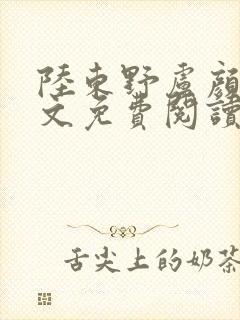 陸東野盧顔
文免費閱讀
舌尖上的奶茶